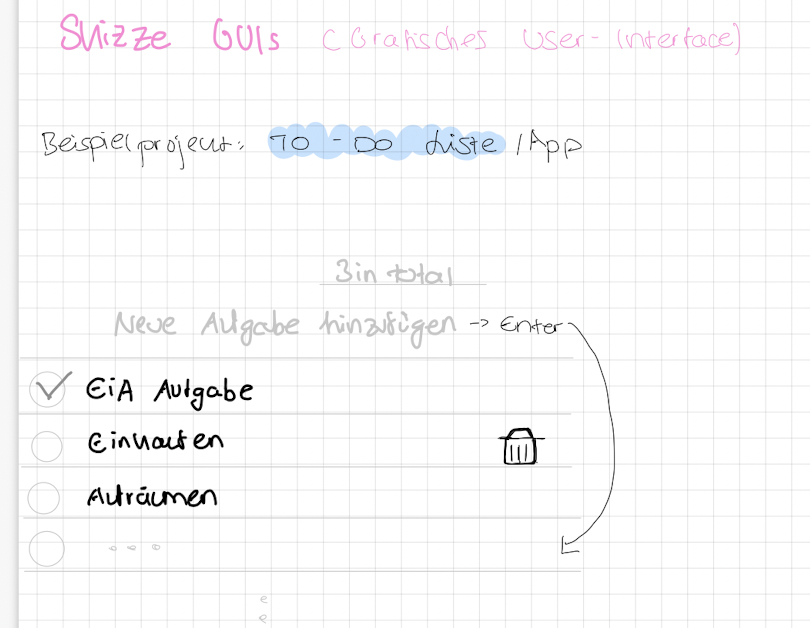 Skizze GUIs (Grafisches User-Interface)
Beispielprojekt: TO-DO Liste / App
3 in total
Neue Aufgabe hinzufügen -> Enter
EiA Aufgabe
Einkaufen
Aufräumen
...
e
e